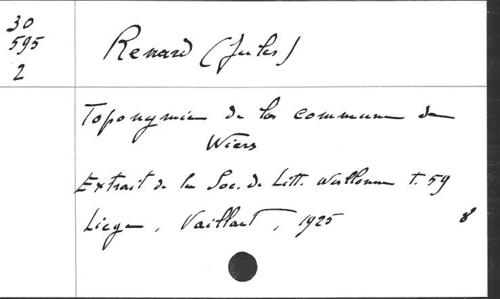 30
595
2
Renard (Jules)
Toponymie de la commune de
Wiers
Extrait de la Soc. de Litt. Wallonne T. 59
Liège, Vaillant, 1925 8